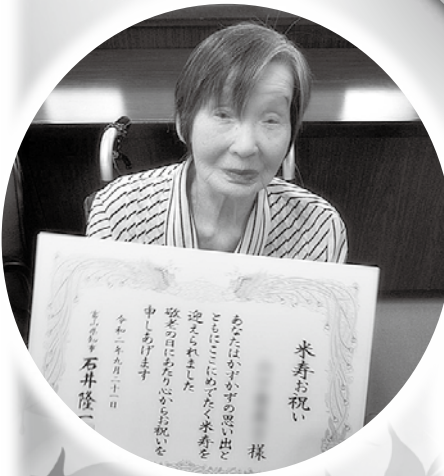 米寿お祝い
様
あなたはかずかずの思い出と
ともにここにめでたく米寿を
迎えられました
敬老の日にあたり心からお祝いを
申しあげます
令和二年九月二十一日
富山県知事 石井隆一